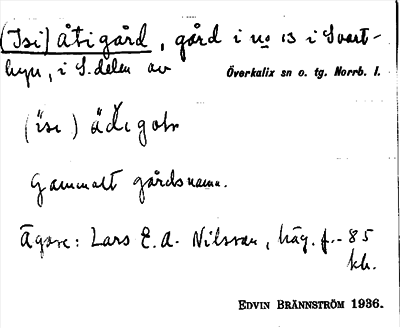 (Isi) åtigård, gård i no 13 i Svart-
byn, i S. delen av Överkalix sn o. tg. Norrb. l.
(ìsι)
Gammalt gårdsnamn.
Ägare: Lars E. A. Nilsson, häg. f. - 85
kh.
EDVIN BRÄNNSTRÖM 1936.